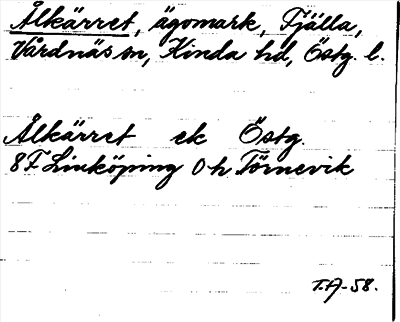 Ålkärret, ägomark, Fjälla,
Vårdnäs sn, Kinda hd, Östg. l.
Ålkärret ek Östg.
8F Linköping 0h Törnevik
T.A-58.